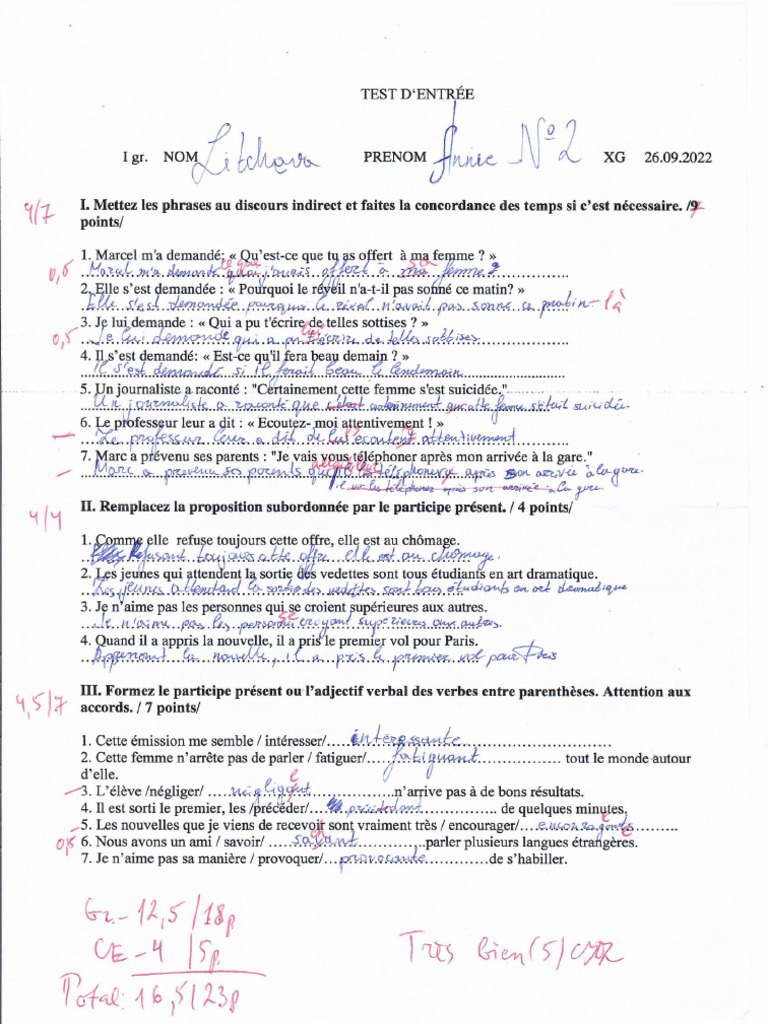 TEST D'ENTRÉE
I gr. NOM Litchova PRENOM Annie №2 XG 26.09.2022
4/7 I. Mettez les phrases au discours indirect et faites la concordance des temps si c'est nécessaire. /9 7
points/
1. Marcel m'a demandé: « Qu'est-ce que tu as offert à ma femme ? »
ce que sa
0,5 Marcel m'a demandé j'avais offert à ma femme
2. Elle s'est demandée : « Pourquoi le réveil n'a-t-il pas sonné ce matin? »
Elle s'est demandée pourquoi le n'avait pas sonné ce matin-là
3. Je lui demande : « Qui a pu t'écrire de telles sottises ? »
lui
0,5 Je lui demande qui a pu écrire de telles sottises
4. Il s'est demandé: « Est-ce qu'il fera beau demain ? »
Il s'est demandé si il ferait beau le lendemain
5. Un journaliste a raconté : "Certainement cette femme s'est suicidée."
Un journaliste a raconté que certainement cette femme s'était suicidée.
6. Le professeur leur a dit : « Ecoutez-moi attentivement ! »
– Le professeur leur a dit de attentivement
7. Marc a prévenu ses parents : "Je vais vous téléphoner après mon arrivée à la gare."
– Marc a prevenu ses parents téléphoner après son arrivée à la gare.
il les téléphoner après son arrivée à la gare
4/4 II. Remplacez la proposition subordonnée par le participe présent. / 4 points/
1. Comme elle refuse toujours cette offre, elle est au chômage.
Refusant toujours cette offre elle est au chômage.
2. Les jeunes qui attendent la sortie des vedettes sont tous étudiants en art dramatique.
Les jeunes attendant la sortie des vedettes sont tous étudiants en art dramatique
3. Je n'aime pas les personnes qui se croient supérieures aux autres.
se
Je n'aime pas les personnes croyant supérieures aux autres.
4. Quand il a appris la nouvelle, il a pris le premier vol pour Paris.
Apprenant la nouvelle, il a pris le premier vol pour Paris
4,5/7 III. Formez le participe présent ou l'adjectif verbal des verbes entre parenthèses. Attention aux
accords. / 7 points/
1. Cette émission me semble / intéresser/ interessante
2. Cette femme n'arrête pas de parler / fatiguer/ fatiguant tout le monde autour
d'elle.
e
– 3. L'élève /négliger/ négligant n'arrive pas à de bons résultats.
4. Il est sorti le premier, les /précéder/ précédant de quelques minutes.
– 5. Les nouvelles que je viens de recevoir sont vraiment très / encourager/
0,5 6. Nous avons un ami / savoir/ savant parler plusieurs langues étrangères.
7. Je n'aime pas sa manière / provoquer/ provocante de s'habiller.
Gr. - 12,5/18p
CE - 4 /5p.
Total: 16,5/23p
Très bien (5)